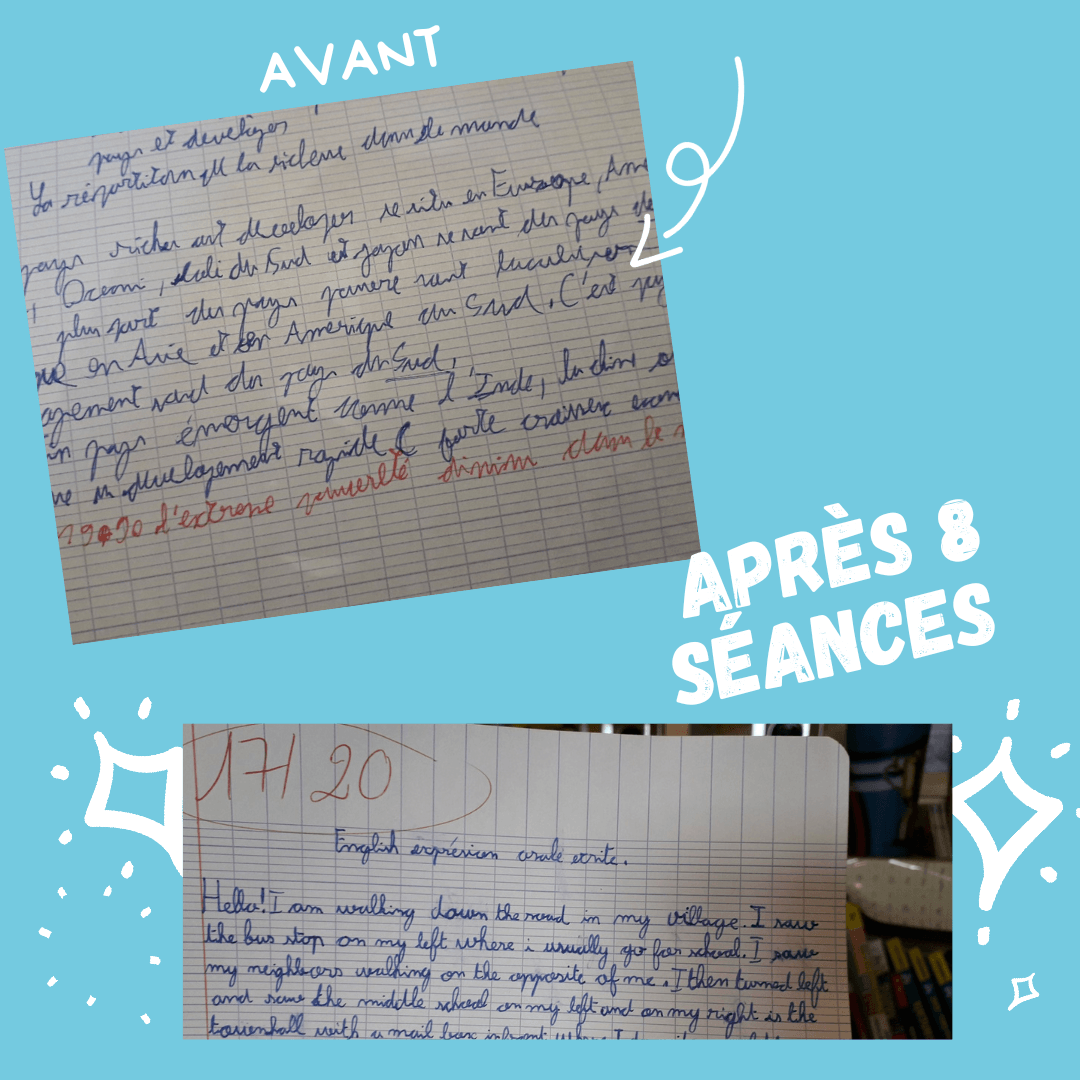 AVANT
pays et develloper
La répartiton de la richesse dans le monde
pays riches sont develloper se situ en Europe, Amé
Oceani, du Sud et japon venant des pays de
plus part des pays pauvre sont
en Asie et en Amerique du Sud. C'est
des pays du Sud,
pays émergent comme l'Inde,
un develloppement rapide forte croissance
1990 d'extreme pauvreté diminu dans le
APRÈS 8
SÉANCES
17/20
English exprésion orale ecrite.
Hello! I am walking down the road in my village. I saw
the bus stop on my left where i usually go for school. I saw
my neighbors walking on the opposite of me. I then turned left
and saw the middle school on my left and on my right is the
townhall with a mail box infront where I